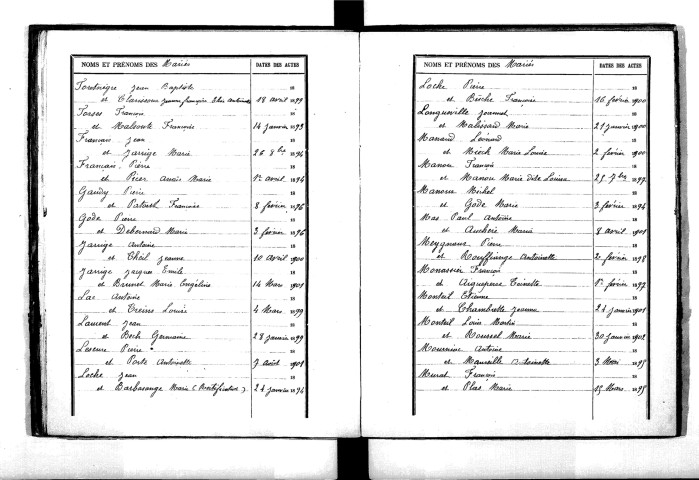 NOMS ET PRÉNOMS DES Mariés DATES DES ACTES
Jean Baptiste 18
et Clarissou Jeanne françoise 18 avril 1899
Torses François 18
et Malsoute Françoise 14 janvier 1893
Francais Jean 18
et Jarrige Marie 26 8bre 1894
Francais Pierre 18
et Anaïs Marie 1er avril 1894
Gaudy Pierre 18
et Françoise 8 février 1896
Gode Pierre 18
et Debernard Marie 3 février 1896
Jarrige Antoine 18
et Theil Jeanne 10 avril 1900
Jarrige Jacques Emile 18
et Brunet Marie Angéline 14 Mars 1901
Lac Antoine 18
et Treins Louise 4 Mars 1899
Laurent Jean 18
et Bech Germaine 28 janvier 1899
Leseure Pierre 18
et Porte Antoinette 7 août 1901
Loche Jean 18
et Barbasange Marie (Rectification) 24 janvier 1894
NOMS ET PRÉNOMS DES Mariés DATES DES ACTES
Loche Pierre 18
et Bèche Françoise 16 février 1900
Longueville Jeannet 18
et Malissard Marie 27 janvier 1900
Manand Léonard 18
et Biech Marie Louise 2 février 1900
Manou François 18
et Manou Marie dite Louise 25 7bre 1897
Manoux Michel 18
et Gode Marie 3 février 1894
Mas Paul Antoine 18
et Aucherie Marie 8 avril 1901
Meygnaux Pierre 18
et Rouffiange Antoinette 2 février 1898
Monassier François 18
et Aigueperse Toinette 1er février 1897
Monteil Etienne 18
et Chambrette Jeanne 24 janvier 1901
Monteil Louis Martin 18
et Roussel Marie 30 janvier 1902
Mournine Antoine 18
et Maureille Antoinette 3 1895
Meurat François 18
et Plas Marie 15 Mars 1895